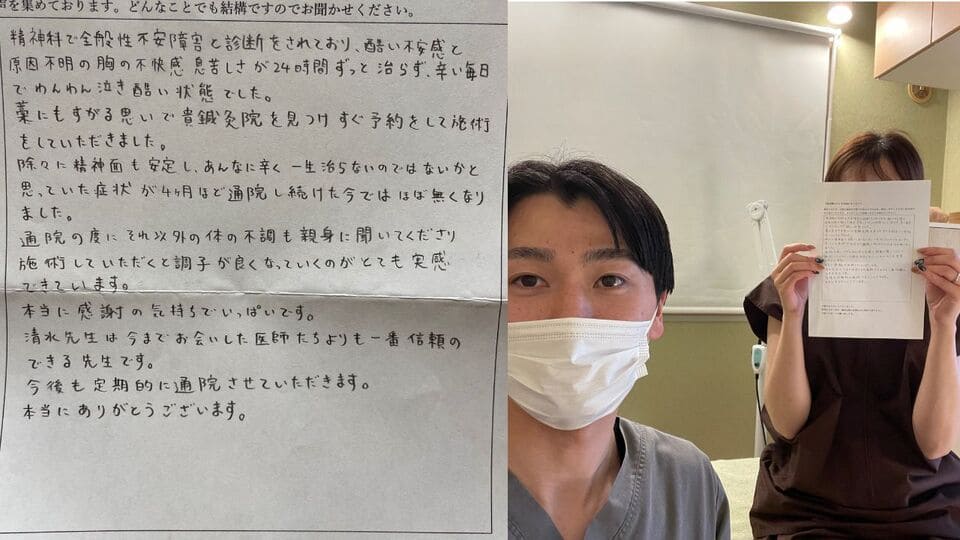 を集めております。どんなことでも結構ですのでお聞かせください。
精神科で全般性不安障害と診断をされており、酷い不安感と
原因不明の胸の不快感 息苦しさが24時間ずっと治らず、辛い毎日
でわんわん泣き酷い状態でした。
藁にもすがる思いで貴鍼灸院を見つけすぐ予約をして施術
をしていただきました。
除々に精神面も安定し、あんなに辛く一生治らないのではないかと
思っていた症状が4ヶ月ほど通院し続けた今ではほぼ無くなり
ました。
通院の度にそれ以外の体の不調も親身に聞いてくださり
施術していただくと調子が良くなっていくのがとても実感
できています。
本当に感謝の気持ちでいっぱいです。
清水先生は今までお会いした医師たちよりも一番信頼の
できる先生です。
今後も定期的に通院させていただきます。
本当にありがとうございます。